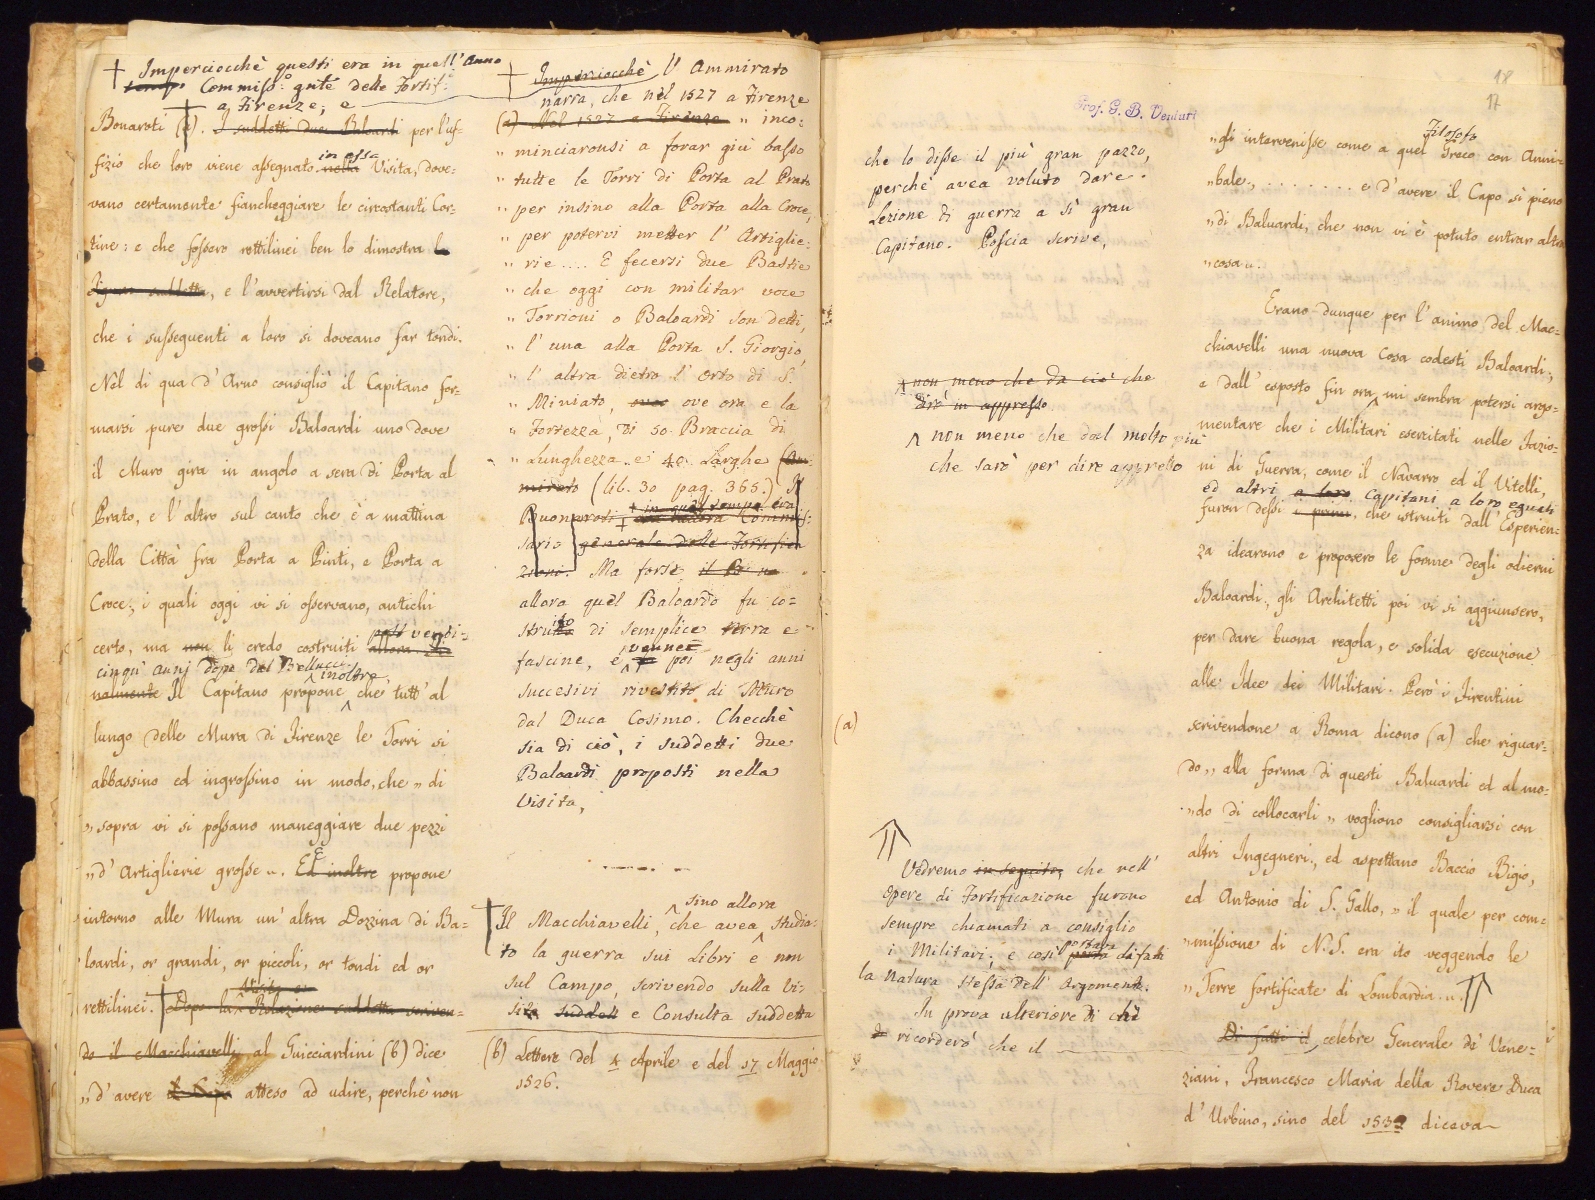 † Imperciocchè questi era in quell'Anno
tempo Commiss.º gnte delle Fortif:
a Firenze; e
Bonaroti (a). I suddetti due Baloardi per l'uf=
fizio che loro viene assegnato in essa nella Visita, dove=
vano certamente fiancheggiare le circostanti Cor=
tine: e che fossero rettilinei ben lo dimostra la
figura suddetta, e l'avvertirsi dal Relatore,
che i susseguenti a loro si doveano far tondi.
Nel di qua d'Arno consigliò il Capitano for=
marsi pure due grossi Baloardi uno dove
il Muro gira in angolo a sera di Porta al
Prato, e l'altro sul canto che è a mattina
della Città fra Porta a Pinti, e Porta a
Croce; i quali oggi vi si osservano, antichi
certo, ma non li credo costruiti allora
cinqu' annj dopo dal Bellucci
Il Capitano propone inoltre che tutt'al
lungo delle Mura di Firenze le Torri si
abbassino ed ingrossino in modo, che „ di
„ sopra vi si possano maneggiare due pezzi
„ d'Artiglierie grosse „. E Ed inoltre propone
intorno alle Mura un'altra Dozzina di Ba=
loardi, or grandi, or piccoli, or tondi ed or
rettilinei. † Dopo la Visita e Relazione suddetta scriven=
do il Macchiavelli al Guicciardini (b) dice
„ d'avere il Capo atteso ad udire, perchè non
† Imperiocchè l'Ammirato
narra, che nel 1527 a Firenze
(a) Nel 1527 a Firenze „ inco=
„ minciaronsi a forar giù basso
„ tutte le Torri di Porta al Prato
„ per insino alla Porta alla Croce,
„ per potervi metter l'Artiglie=
„ rie .... E fecersi due Bastie
„ che oggi con militar voce
„ Torrioni o Baloardi son detti,
„ l'una alla Porta S. Giorgio,
„ l'altra dietro l'Orto di S.
„ Miniato, ove ove ora e la
„ Fortezza, di 50. Braccia di
„ Lunghezza e 40. Larghe (Am=
mirato (lib. 30 pag. 365.) Il
Buonaroti † in quel tempo era Commis=
sario generale delle Fortifica
zioni. Ma forse il
allora quel Baloardo fu co=
struito di semplice terra e
fascine, e venne poi negli anni
succesivi rivestito di Muro
dal Duca Cosimo. Checchè
sia di ciò, i suddetti due
Baloardi proposti nella
Visita,
† Il Macchiavelli, che sino allora avea studia=
to la guerra sui Libri e non
sul Campo, scrivendo sulla Vi=
sita suddett e Consulta suddetta
(b) Lettere del 4 Aprile e del 17 Maggio
1526.
Prof. G. B. Venturi
che lo disse il più gran pazzo,
perchè avea voluto dare
Lezione di guerra a sì gran
Capitano. Poscia scrive,
non meno che da ciò che
dirò in appresso
Λ non meno che dal molto più
che sarò per dire appresso
(a)
Vedremo in seguito, che nell'
Opere di Fortificazione furono
sempre chiamati a consiglio
i Militari; e così portava difatti
la natura stessa dell'Argomento.
In prova ulteriore di chè
ricorderò che il
18
17
„ gli intervenisse come a quel Filosofo Greco con Anni=
„ bale, . . . . . . . . e d'avere il Capo sì pieno
„ di Baluardi, che non vi è potuto entrar altra
„ cosa „.
Erano dunque per l'animo del Mac=
chiavelli una nuova Cosa codesti Baloardi;
e dall'esposto fin ora Λ mi sembra potersi argo=
mentare che i Militari esercitati nelle Fazio=
ni di Guerra, come il Navarro ed il Vitelli,
ed altri a loro Capitani a loro eguali
furon dessi i primi, che istruiti dall'Esperien=
za idearono e proposero le forme degli odierni
Baloardi, gli Architetti poi vi si aggiunsero,
per dare buona regola, e solida esecuzione
alle Idee dei Militari. Però i Fiorentini
scrivendone a Roma dicono (a) che riguar=
do „ alla forma di questi Baluardi ed al mo=
„ do di collocarli „ vogliono consigliarsi con
altri Ingegneri, ed aspettano Baccio Bigio,
ed Antonio di S. Gallo, „ il quale per com=
„ missione di N.S. era ito veggendo le
„ Terre fortificate di Lombardia „.
Di fatti il celebre Generale di Vene=
ziani, Francesco Maria della Rovere Duca
d'Urbino, sino del 1532 diceva